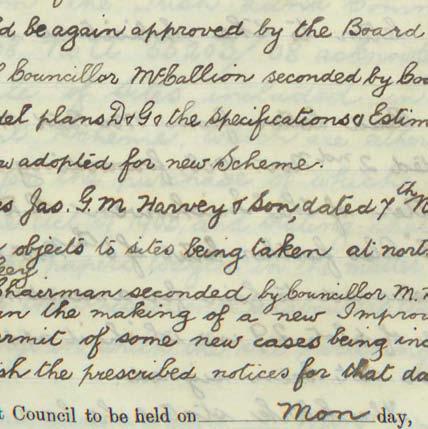 d be again approved by the Board
Councillor McCallion seconded by Cou
del plans D & G & the specifications & Estim
w adopted for new Scheme.
s Jas. G. M. Harvey & Son, dated 7th N
objects to sites being taken at north
Chairman seconded by Councillor M.
in the making of a new Improv
ermit of some new cases being inc
sh the prescribed notices for that da
t Council to be held on Mon day,